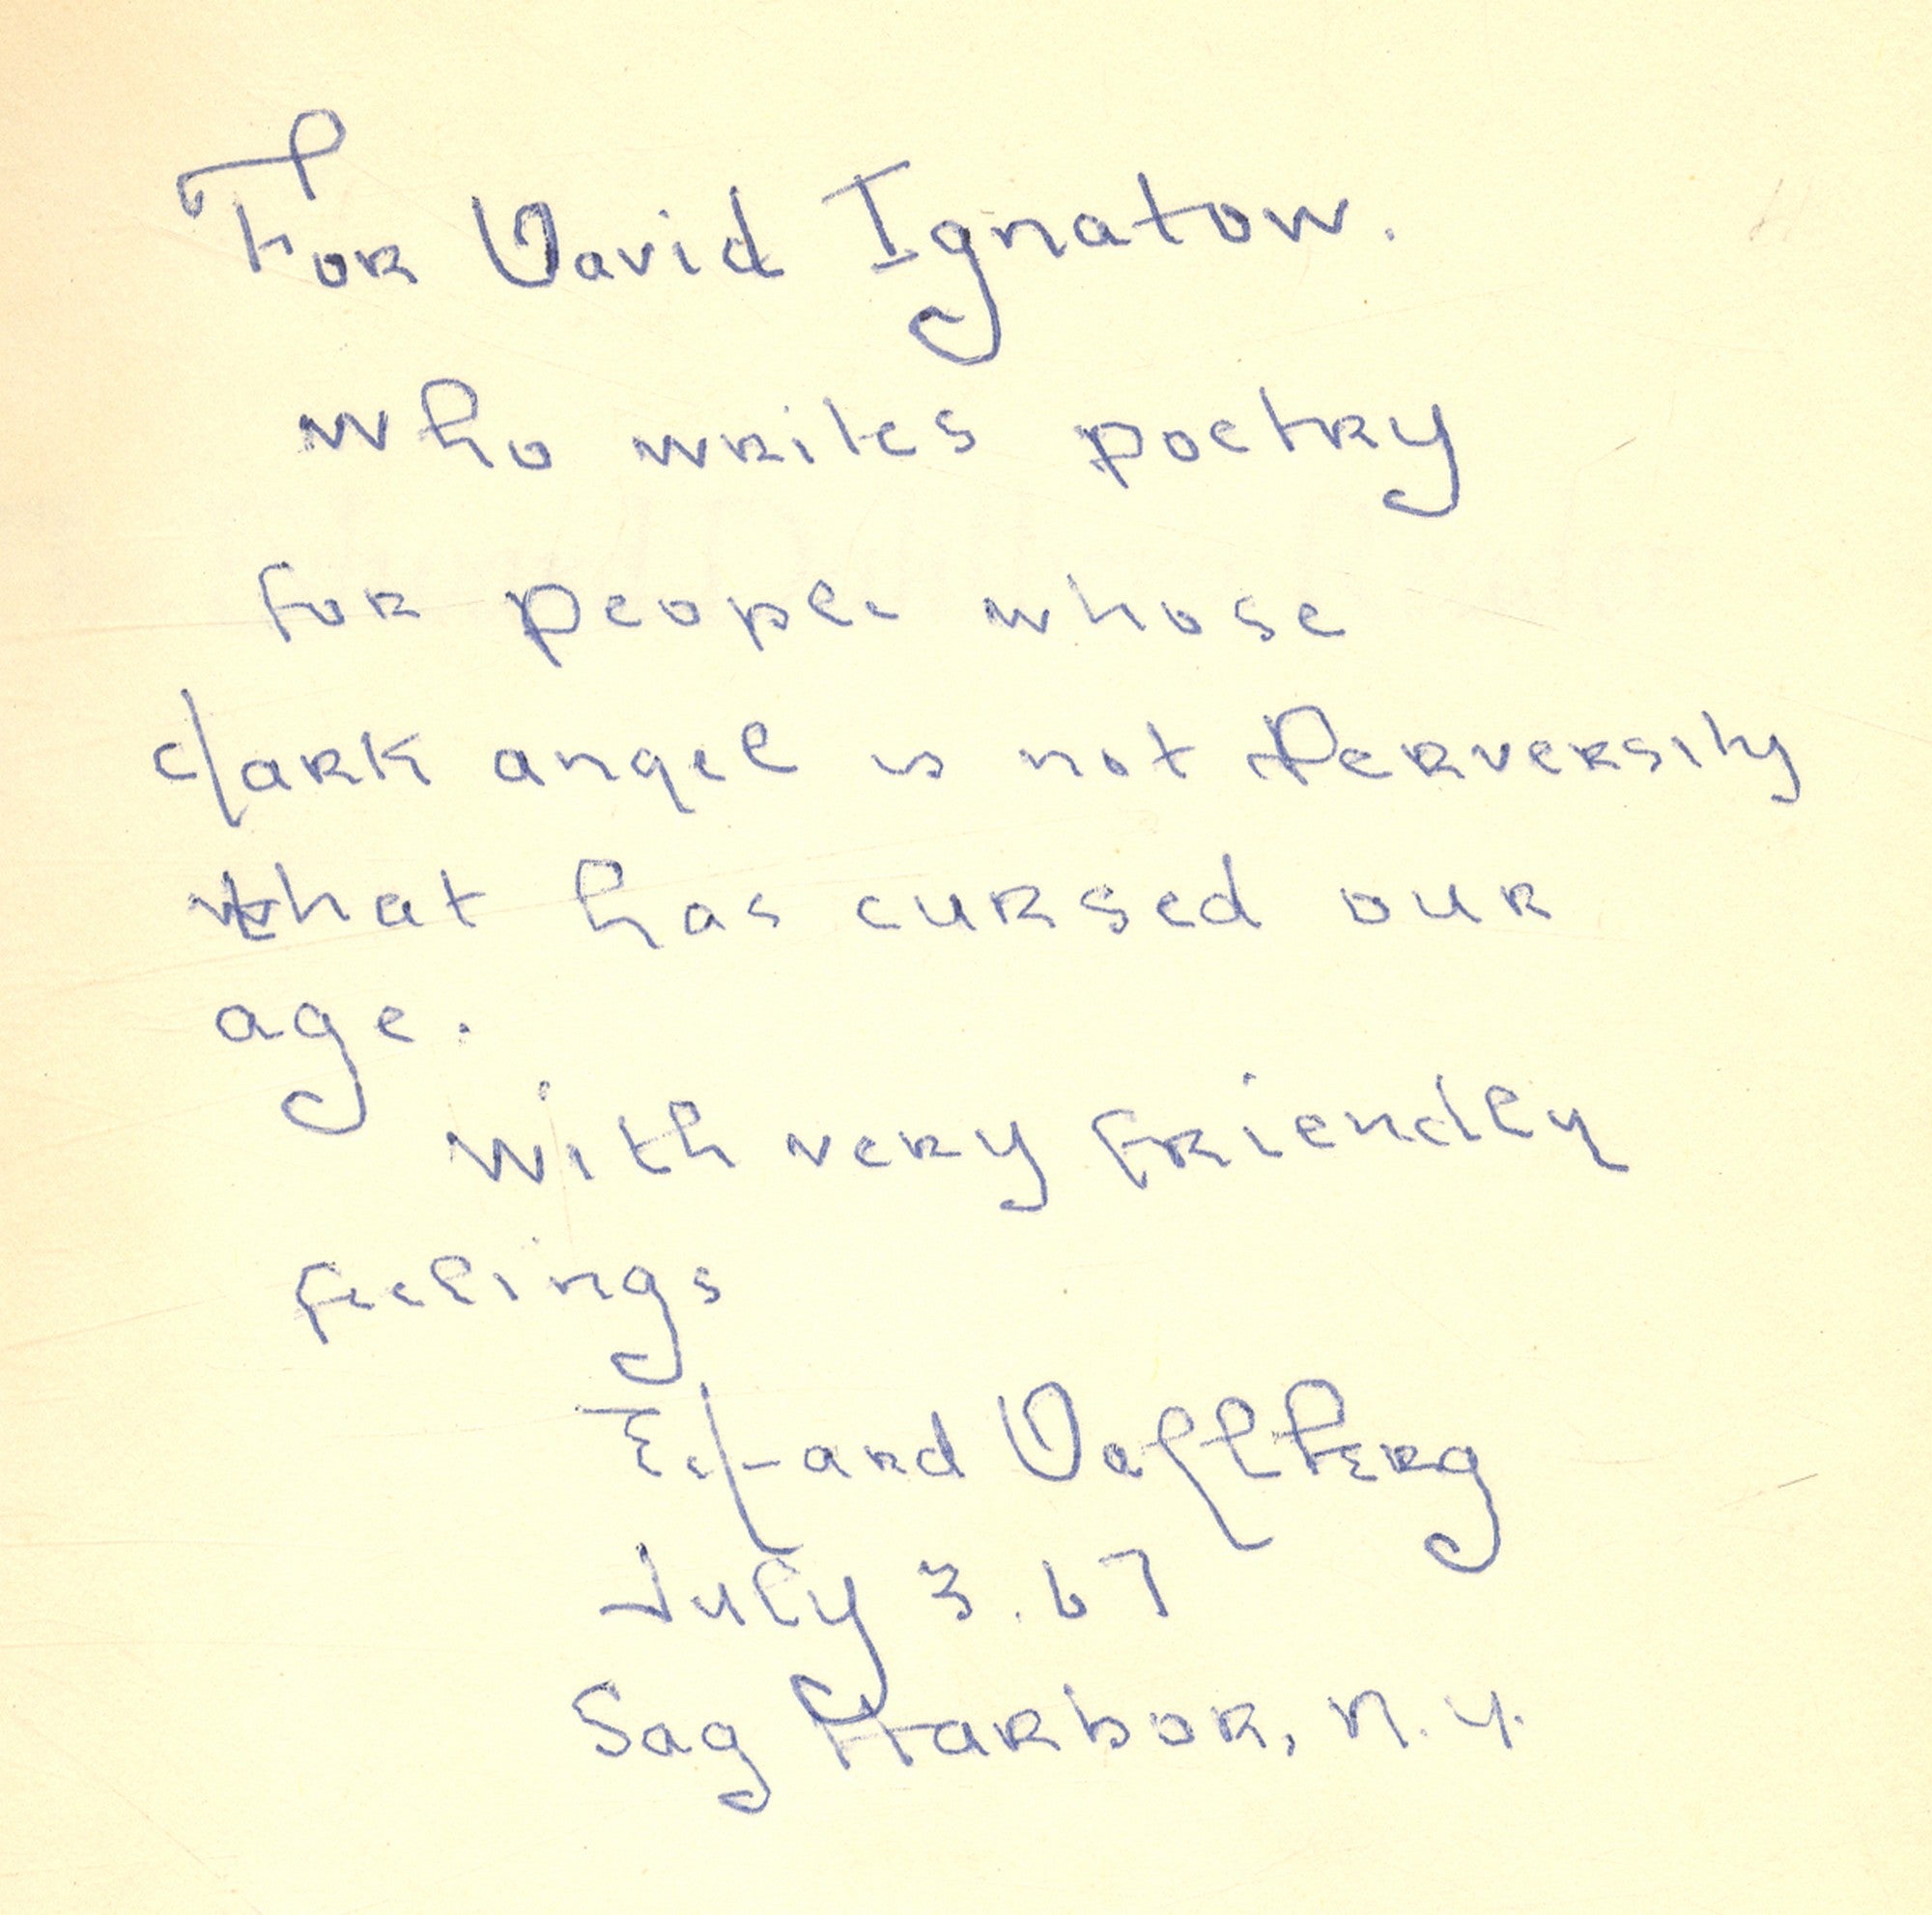 For David Ignatow.
who writes poetry
for people whose
dark angel is not Perversity
that has cursed our
age.
With very friendly
feelings
Edward Dahlberg
July 3. 67
Sag Harbor, N.Y.